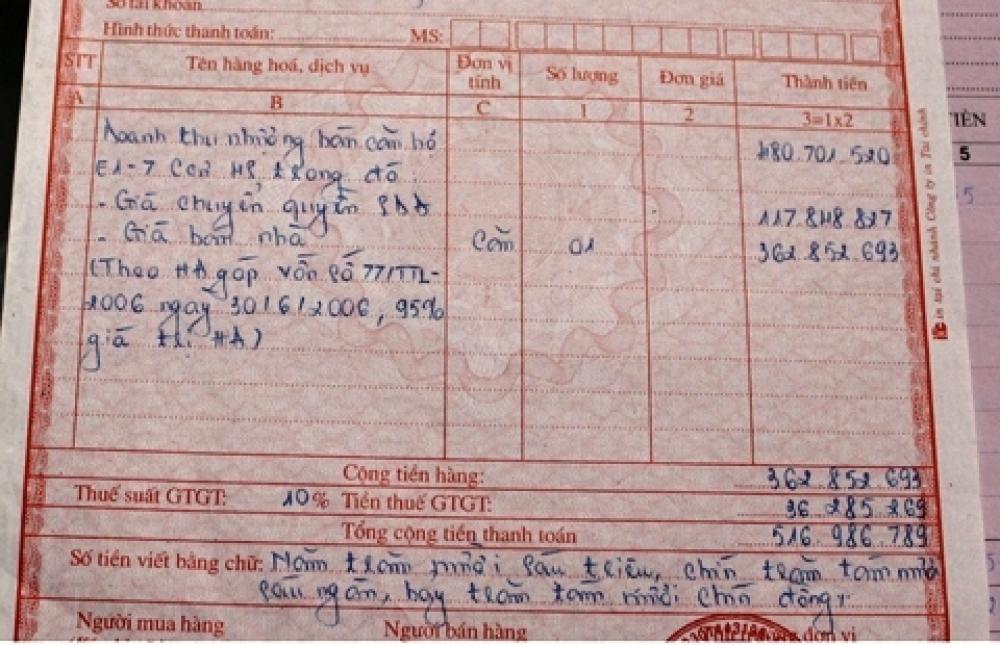 Số tài khoản
Hình thức thanh toán: MS:
STT Tên hàng hoá, dịch vụ Đơn vị tính Số lượng Đơn giá Thành tiền
A B C 1 2 3=1x2
Doanh thu nhượng bán căn hộ 480.701.520
E1-7 Của HĐ trong đó:
- Giá chuyển quyền SDĐ 117.848.827
- Giá bán nhà Căn 01 362.852.693
(Theo HĐ góp vốn số 77/TTL-
2006 ngày 30/6/2006, 95%
giá trị HĐ)
Cộng tiền hàng: 362.852.693
Thuế suất GTGT: 10% Tiền thuế GTGT: 36.285.269
Tổng cộng tiền thanh toán 516.986.789
Số tiền viết bằng chữ: Năm trăm mười sáu triệu, chín trăm tám mươi
sáu ngàn, bảy trăm tám mươi chín đồng.
Người mua hàng Người bán hàng đơn vị
in tại chi nhánh Công ty in Tài chính
TIỀN
5